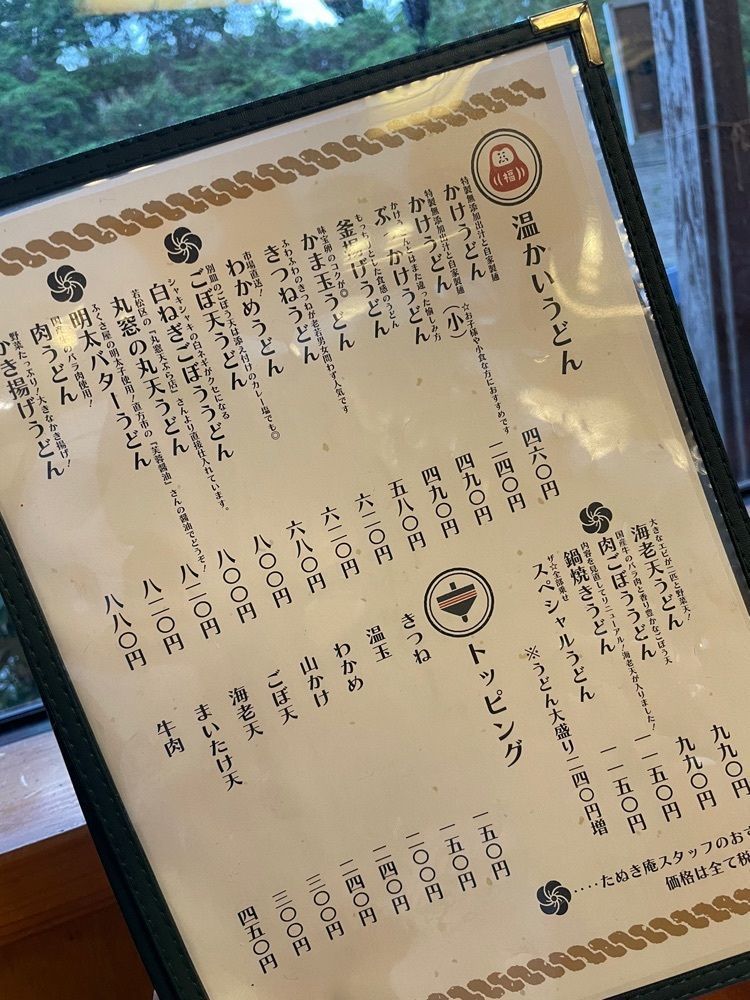 福
温かいうどん
特製無添加出汁と自家製麺
かけうどん 四六〇円
特製無添加出汁と自家製麺
かけうどん(小) ☆お子様や小食な方におすすめです。 二四〇円
かけうどんとはまた違った愉しみ方
ぶっかけうどん 四九〇円
もっちりとした食感のうどん
釜揚げうどん 四九〇円
味宝卵のコクが◎
かま玉うどん 五八〇円
ふわふわのきつねが老若男女問わず人気です
きつねうどん 六二〇円
市場直送!
わかめうどん 六二〇円
別皿のごぼう天は添え付けのカレー塩でも◎
ごぼ天うどん 六八〇円
シャキシャキの白ネギがクセになる
白ねぎごぼううどん 八〇〇円
若松区の「丸窓天ぷら店」さんより直接仕入れています。
丸窓の丸天うどん 八〇〇円
ふくさ屋の明太子使用!直方市の「芙蓉醤油」さんの醤油でどうぞ!
明太バターうどん 八二〇円
国産牛のバラ肉使用!
肉うどん 八二〇円
野菜たっぷり!大きなかき揚げ!
かき揚げうどん 八八〇円
大きなエビが二匹と野菜天!
海老天うどん 九九〇円
国産牛のバラ肉と香り豊かなごぼう天
肉ごぼううどん 九九〇円
内容を見直してリニューアル!海老天が入りました!
鍋焼きうどん 一一五〇円
ザ☆全部乗せ
スペシャルうどん 一一五〇円
※うどん大盛り二四〇円増
トッピング
きつね 一五〇円
温玉 一五〇円
わかめ 二〇〇円
山かけ 二四〇円
ごぼ天 二四〇円
海老天 三〇〇円
まいたけ天 三〇〇円
牛肉 四五〇円
‥‥たぬき庵スタッフのおす
価格は全て税